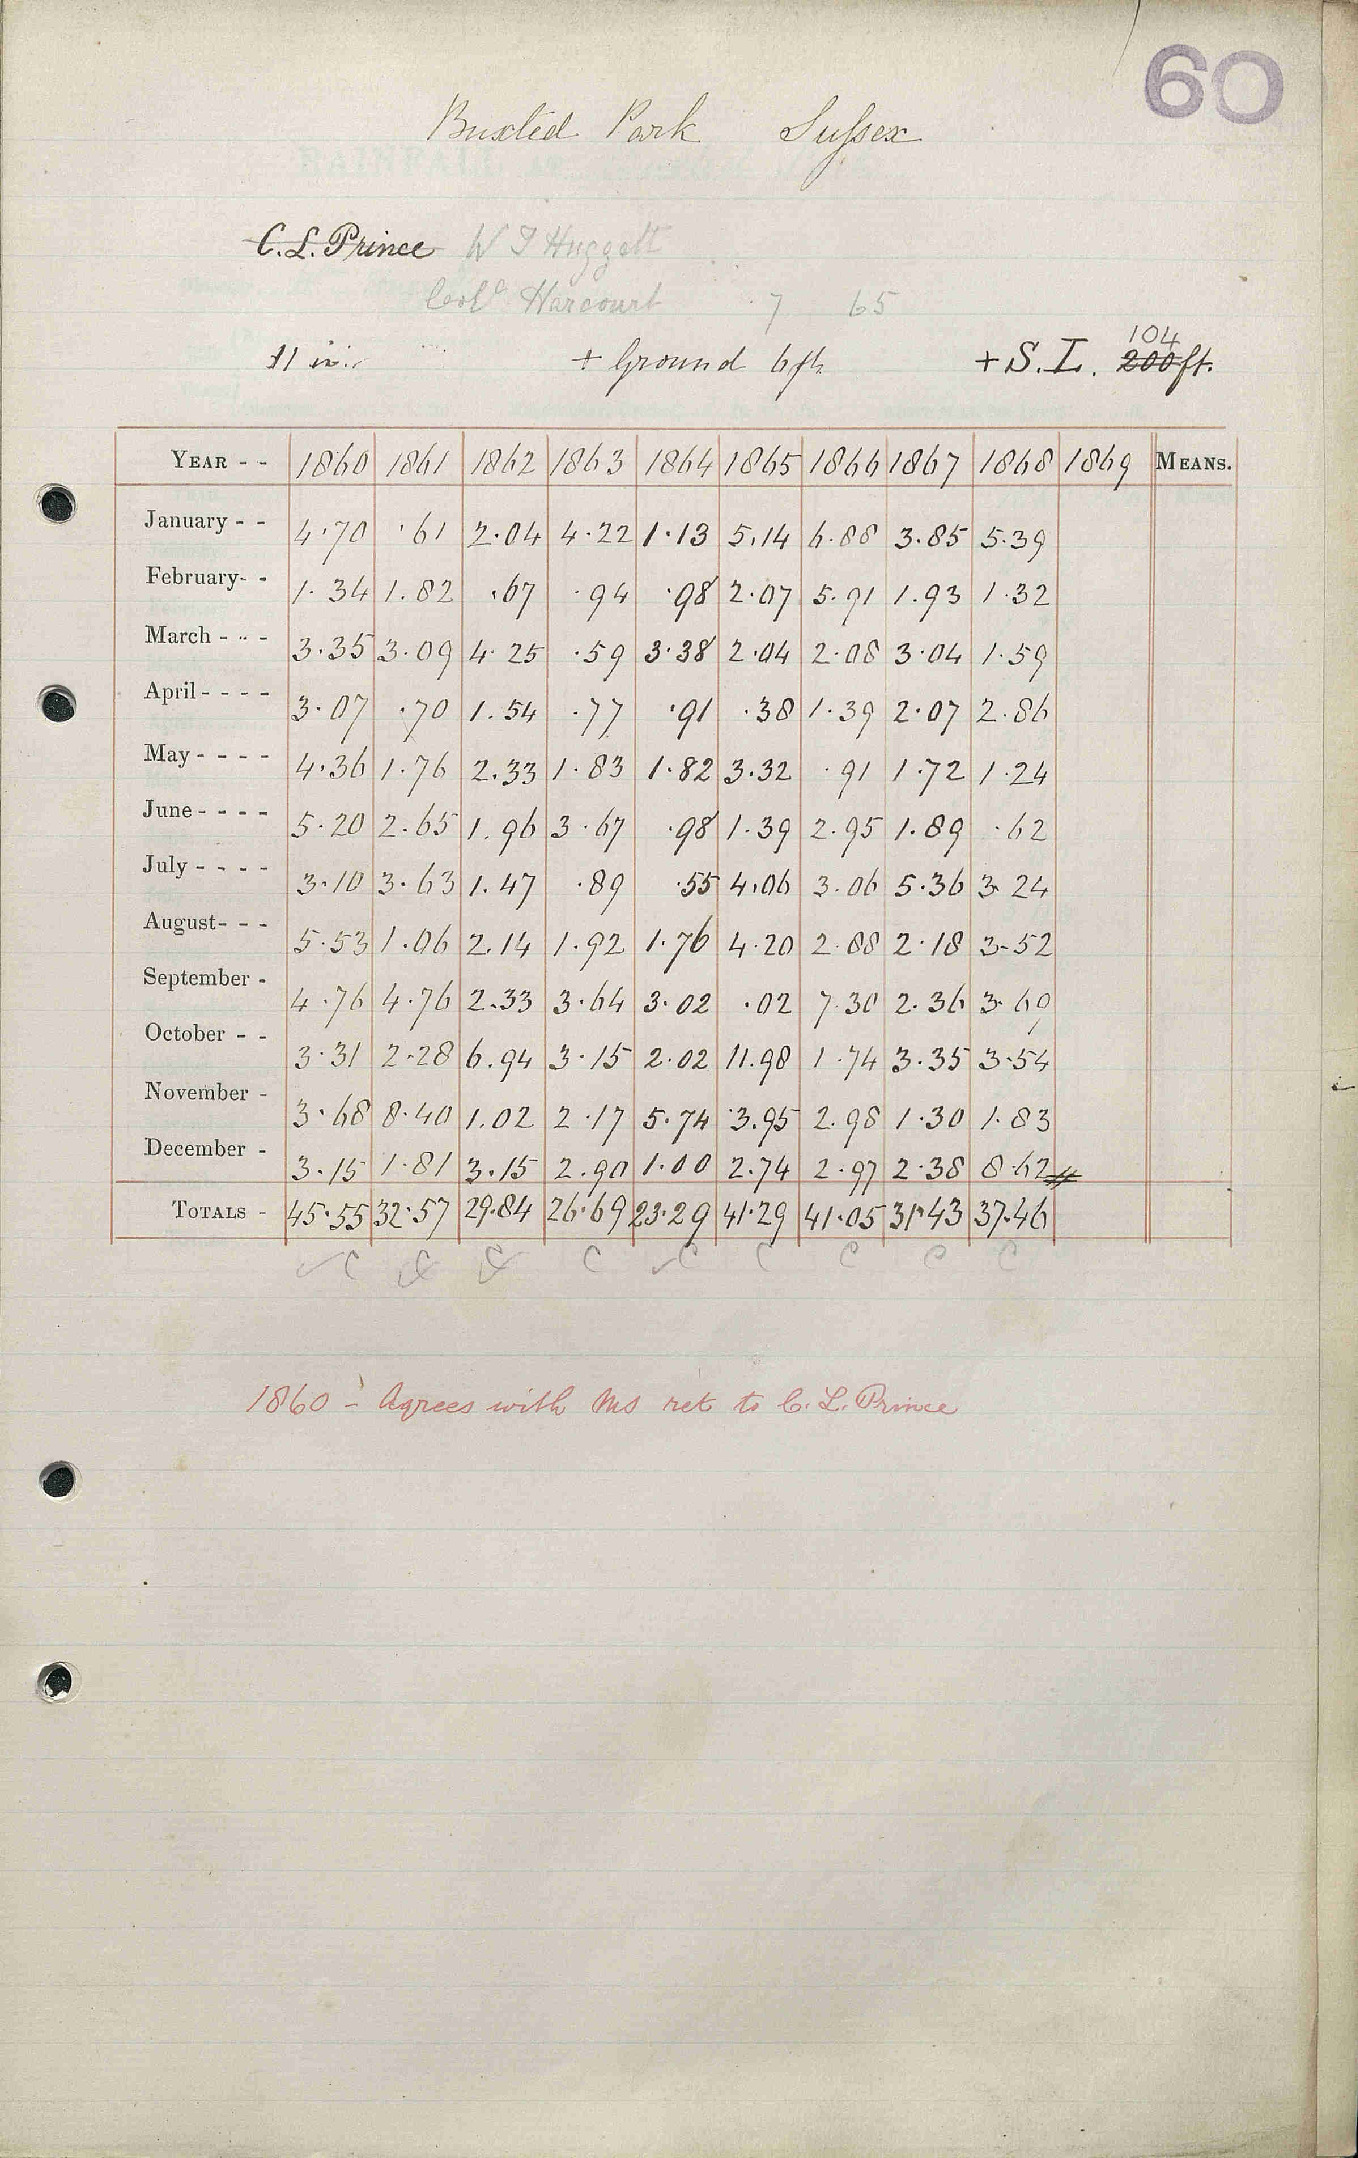 60
Buxted Park Sussex
C. L. Prince W J Huggett
Col. Harcourt 7 65
11 in. + Ground 6 ft. + S. L. 104 200 ft.
YEAR - - 1860 1861 1862 1863 1864 1865 1866 1867 1868 1869 MEANS.
January - - 4.70 .61 2.04 4.22 1.13 5.14 6.88 3.85 5.39
February- - 1.34 1.82 .67 .94 .98 2.07 5.91 1.93 1.32
March - - - 3.35 3.09 4.25 .59 3.38 2.04 2.08 3.04 1.59
April - - - - 3.07 .70 1.54 .77 .91 .38 1.39 2.07 2.86
May - - - - 4.36 1.76 2.33 1.83 1.82 3.32 .91 1.72 1.24
June - - - - 5.20 2.65 1.96 3.67 .98 1.39 2.95 1.89 .62
July - - - - 3.10 3.63 1.47 .89 .55 4.06 3.06 5.36 3.24
August- - - 5.53 1.06 2.14 1.92 1.76 4.20 2.88 2.18 3.52
September - 4.76 4.76 2.33 3.64 3.02 .02 7.30 2.36 3.69
October - - 3.31 2.28 6.94 3.15 2.02 11.98 1.74 3.35 3.54
November - 3.68 8.40 1.02 2.17 5.74 3.95 2.98 1.30 1.83
December - 3.15 1.81 3.15 2.90 1.00 2.74 2.97 2.38 8.62
TOTALS - 45.55 32.57 29.84 26.69 23.29 41.29 41.05 31.43 37.46
C C C C C C C C C
1860 - Agrees with MS ret to C. L. Prince